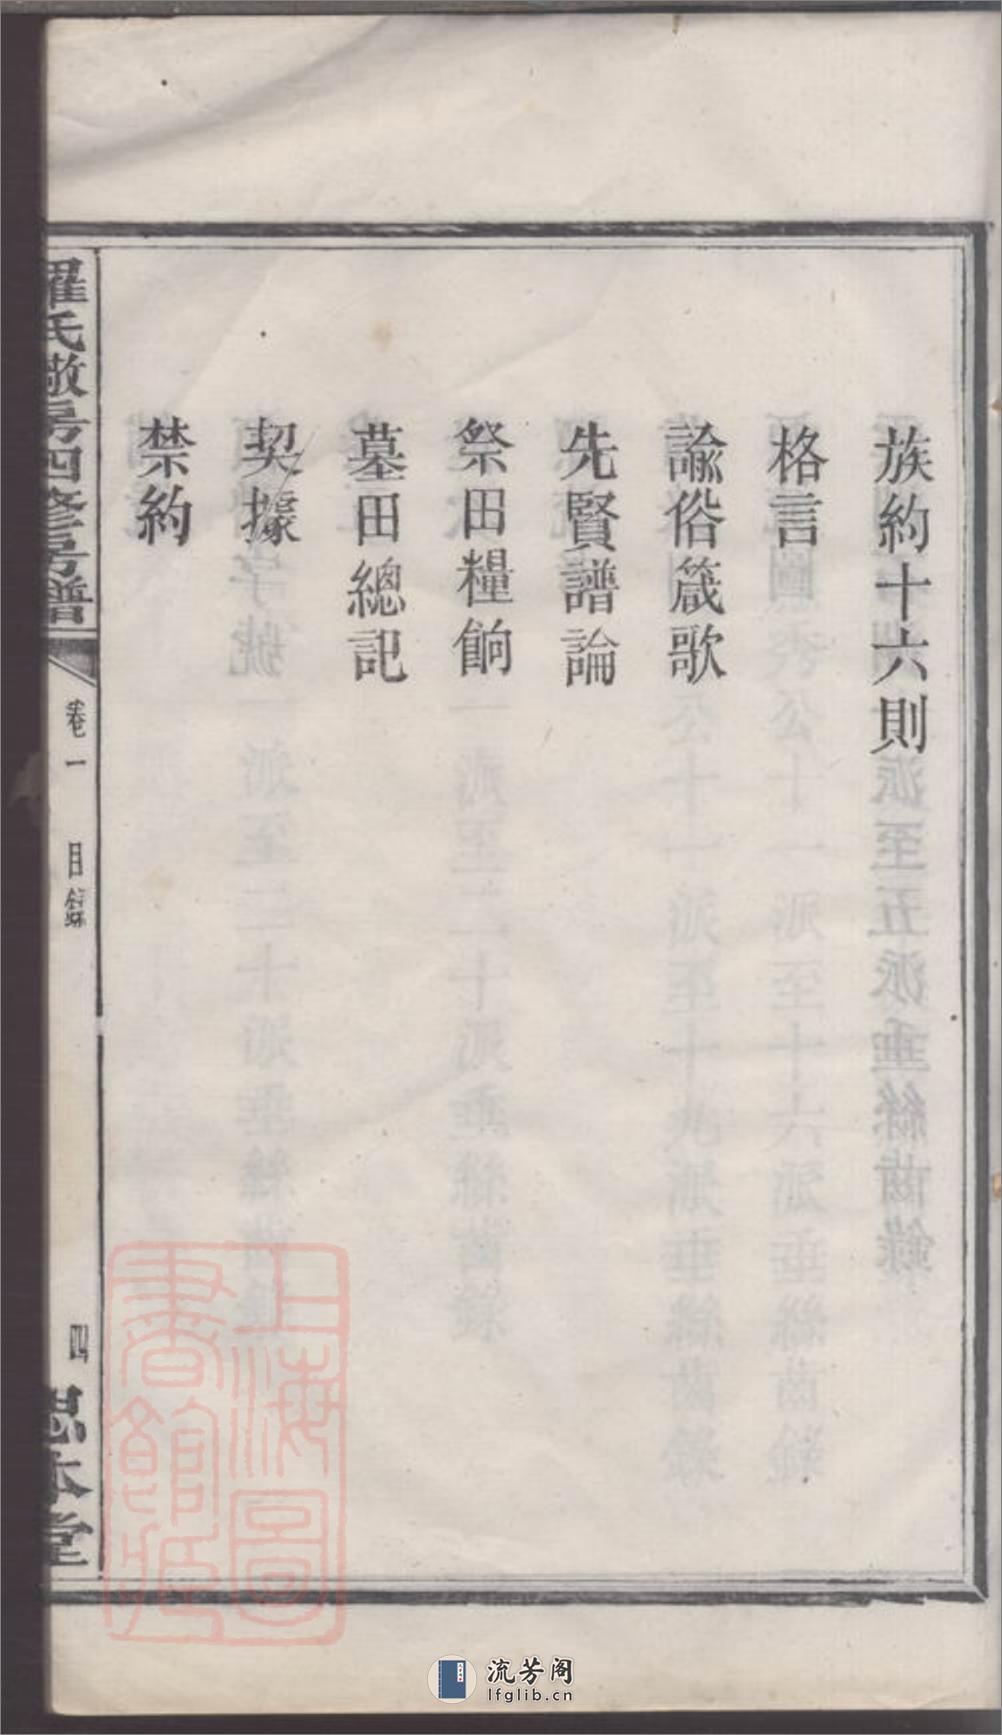 族約十六則
格言
諭俗箴歌
先賢譜論
祭田糧餉
墓田總記
契據
禁約
羅氏敬房四修房譜
卷一
目錄
四
思本堂
上海圖書館藏
流芳阁
lfglib.cn